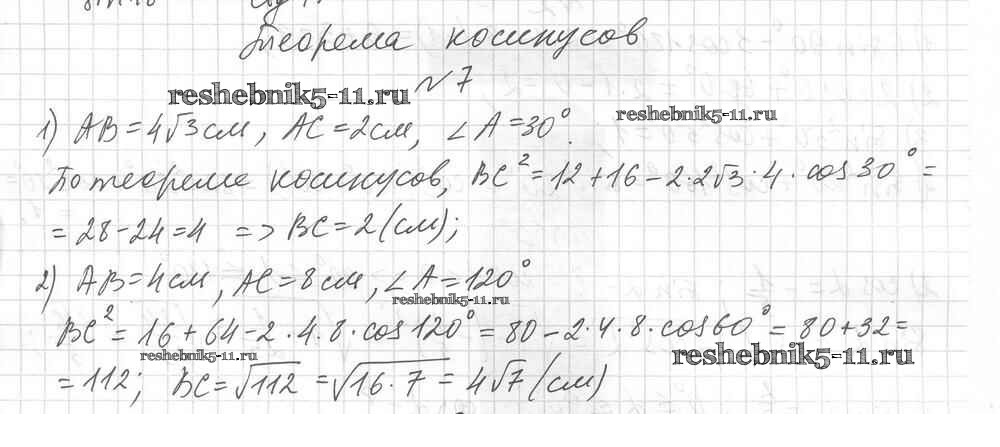 Теорема косинусов
№7
reshebnik5-11.ru
1) AB=4√3см, AC=2см, ∠A=30°.
reshebnik5-11.ru
По теореме косинусов, BC²=12+16-2·2√3·4·cos30°=
=28-24=4 => BC=2(см);
2) AB=4см, AC=8см, ∠A=120°
reshebnik5-11.ru
BC²=16+64-2·4·8·cos120°=80-2·4·8·cos60°=80+32=
reshebnik5-11.ru
reshebnik5-11.ru
=112; BC=√112=√16·7=4√7(см)